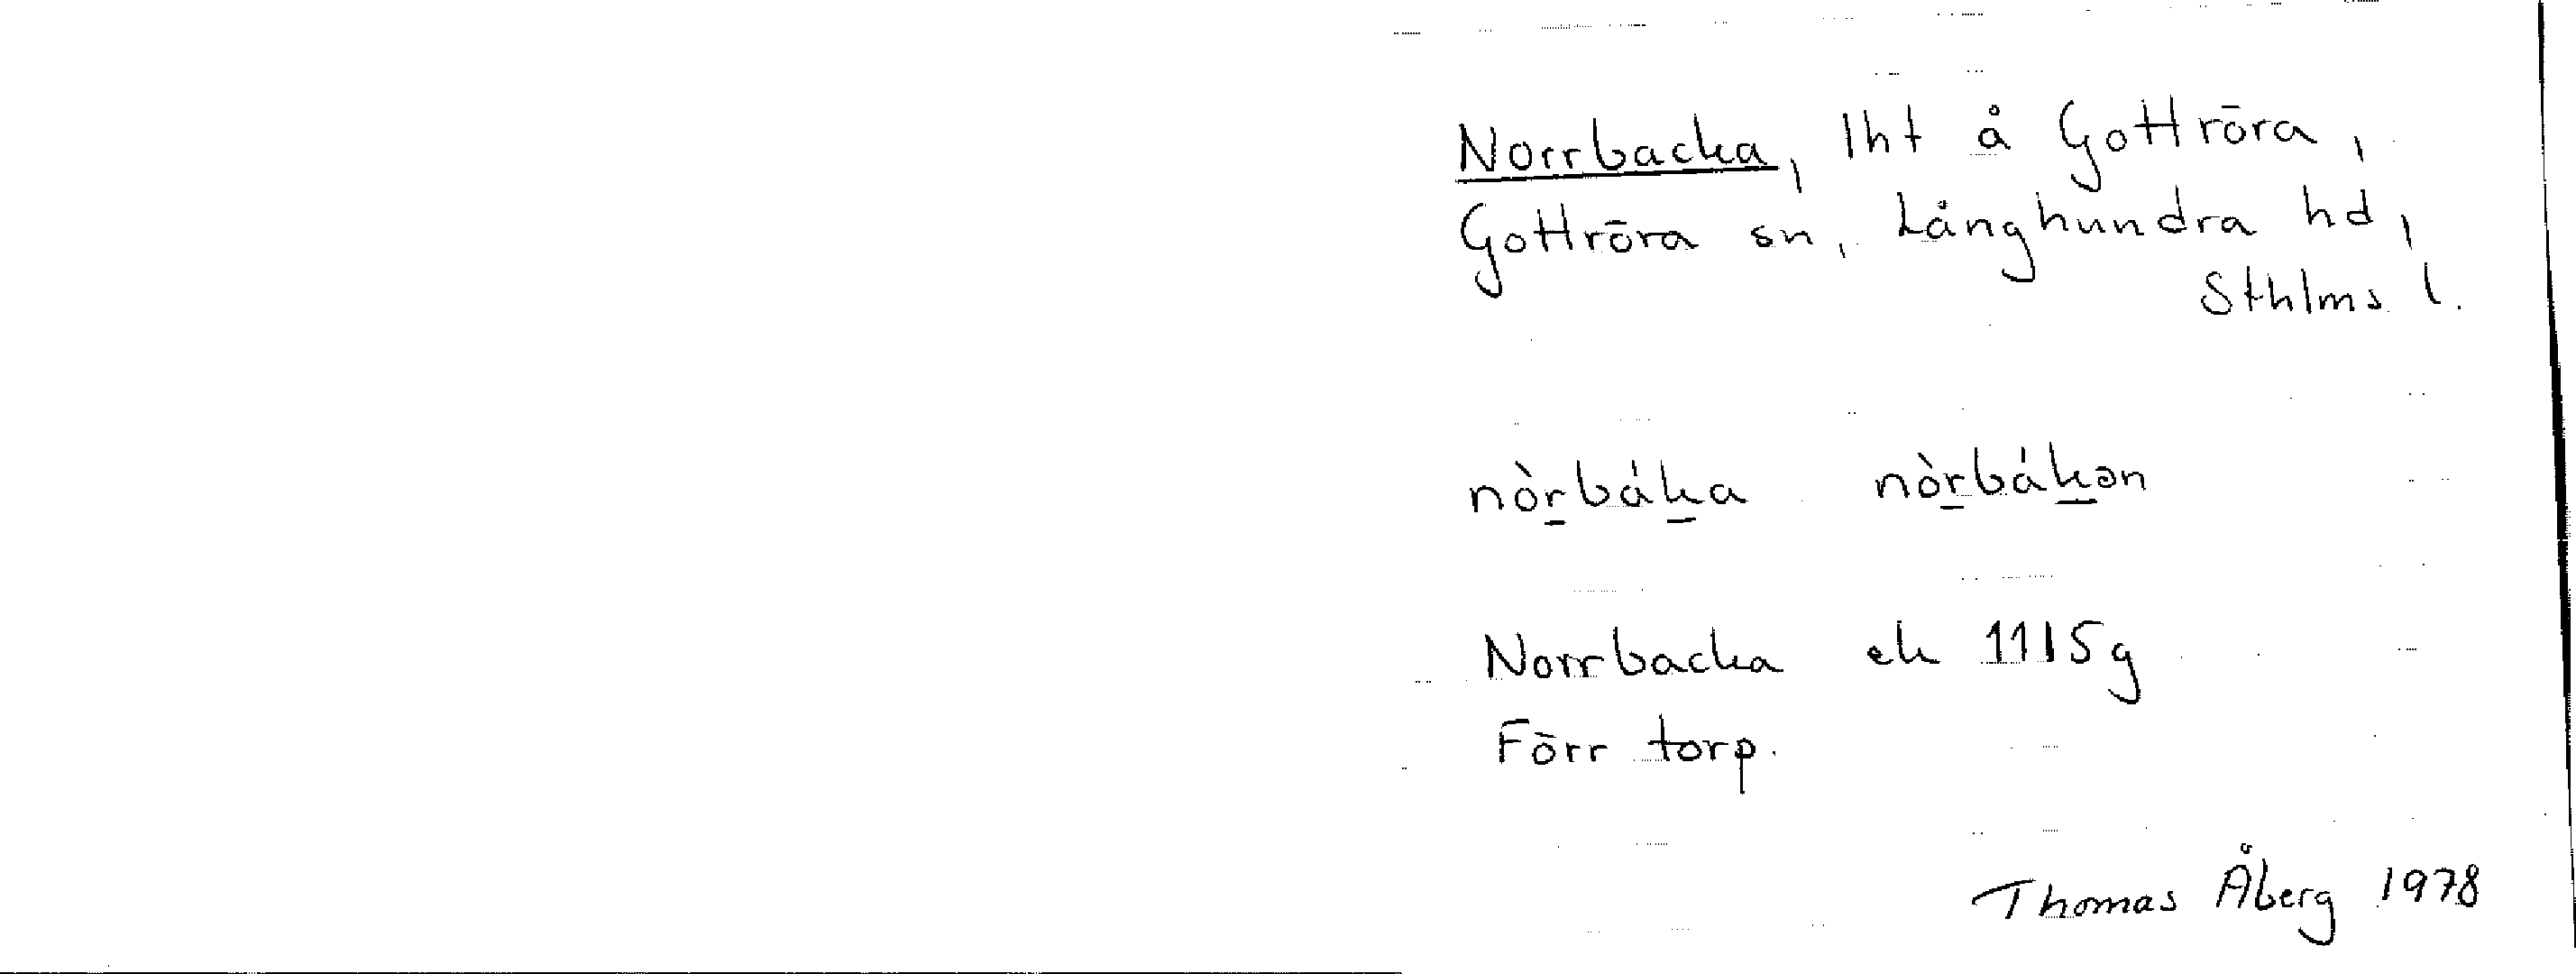 Norrbacka, lht å Gottröra,
Gottröra sn, Långhundra hd,
Sthlms l.
nòr̲bák̲a nòr̲bák̲ən
Norrbacka ek 11I5g
Förr torp.
Thomas Åberg 1978